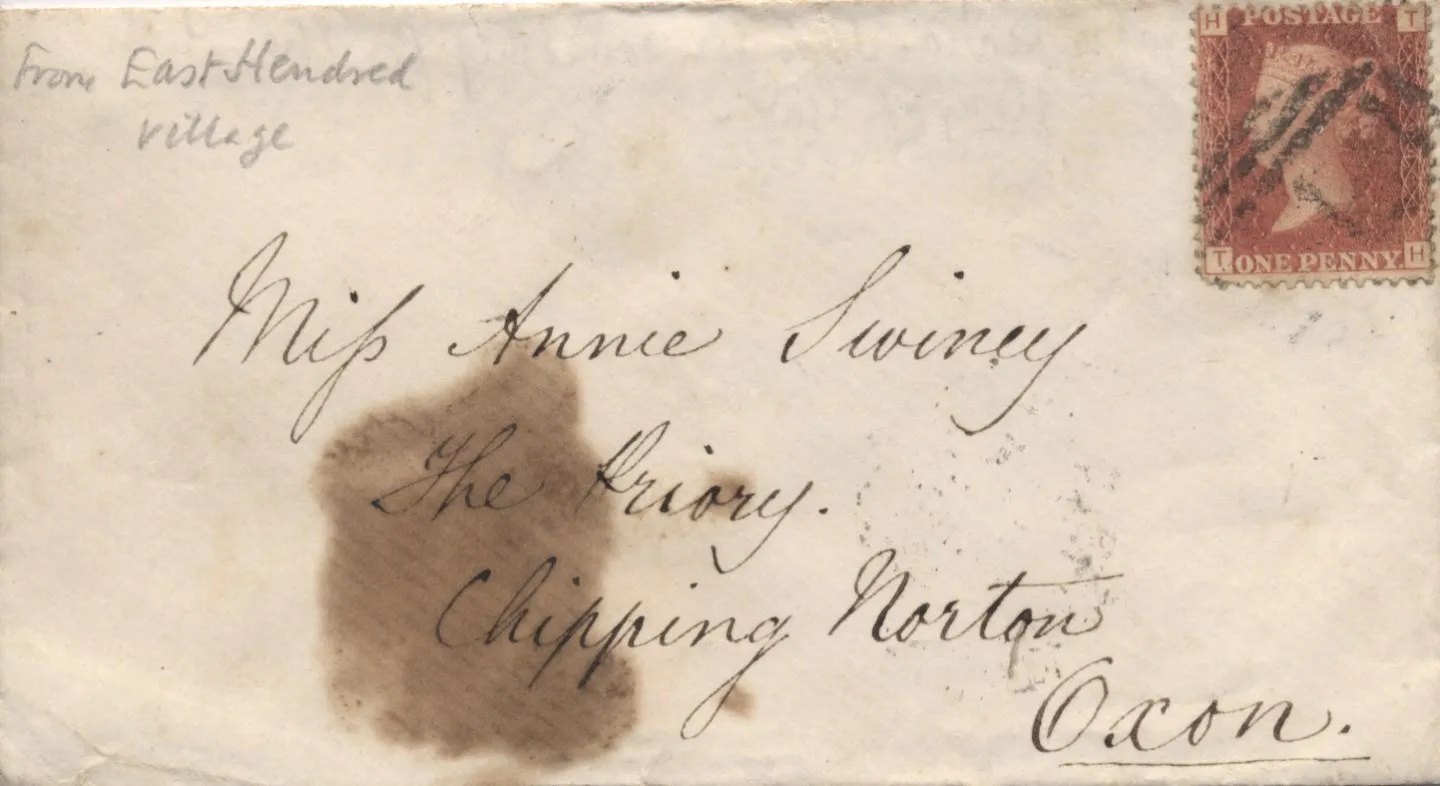 From East Hendred
village
H POSTAGE T
T ONE PENNY H
Miss Annie Swiney
The Priory.
Chipping Norton
Oxon.